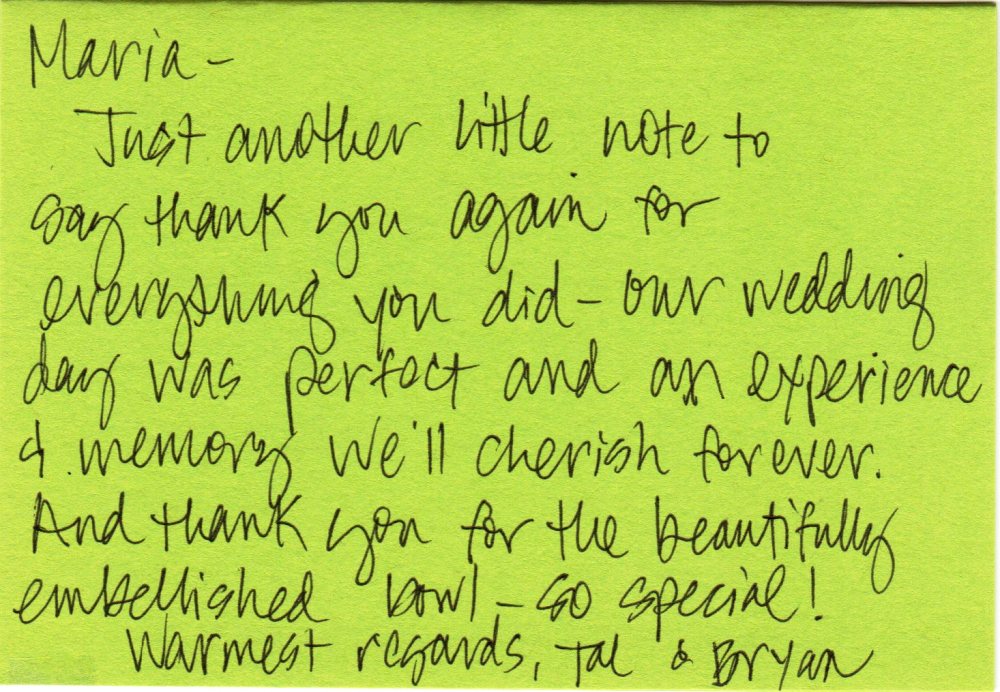 Maria -
Just another little note to
say thank you again for
everything you did - our wedding
day was perfect and an experience
& memory we'll cherish forever.
And thank you for the beautifully
embellished bowl - so special!
Warmest regards, Tal & Bryan